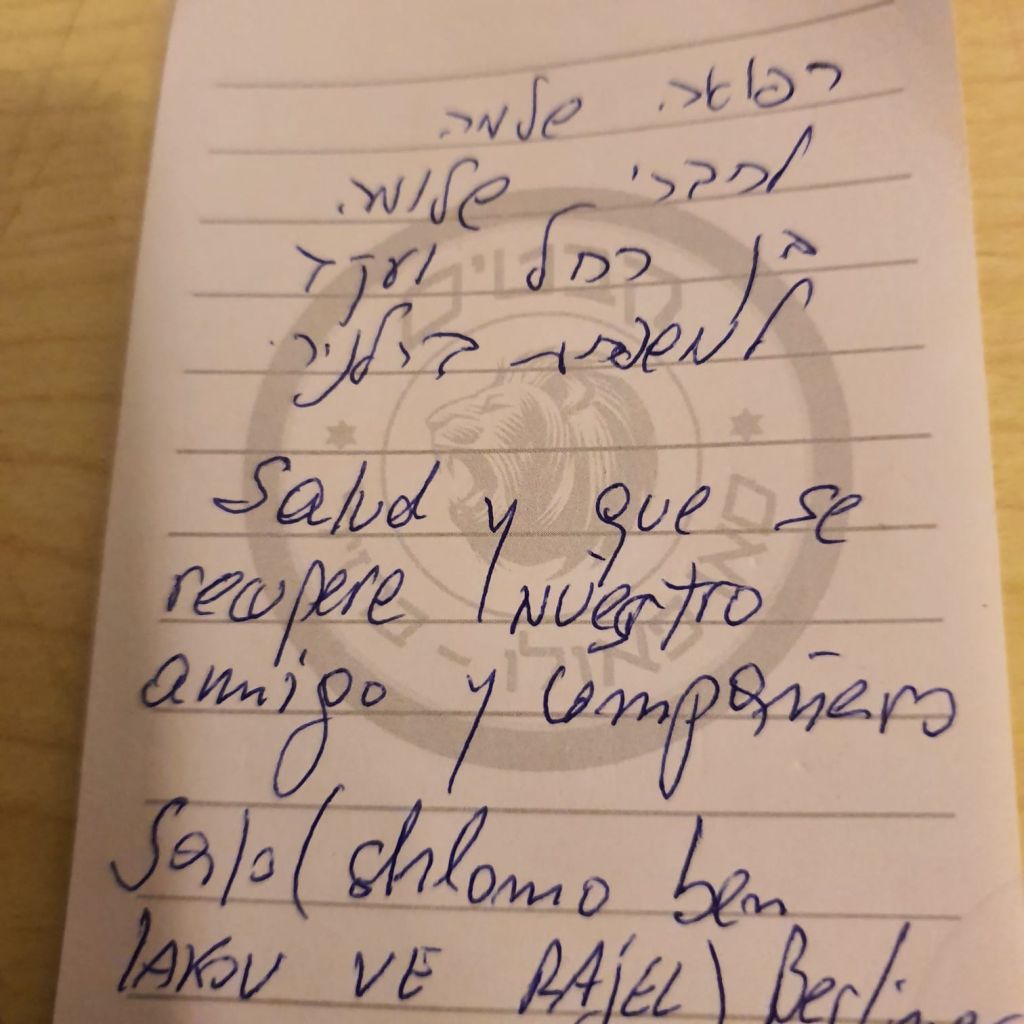 רפואה שלמה
לחברי שלומה
בן רחל ועקב
למשפחת ברלניר
Salud y que se
recupere nuestro
amigo y compañero
Salo (shlomo ben
IAKOV VE RAJEL) Berliner